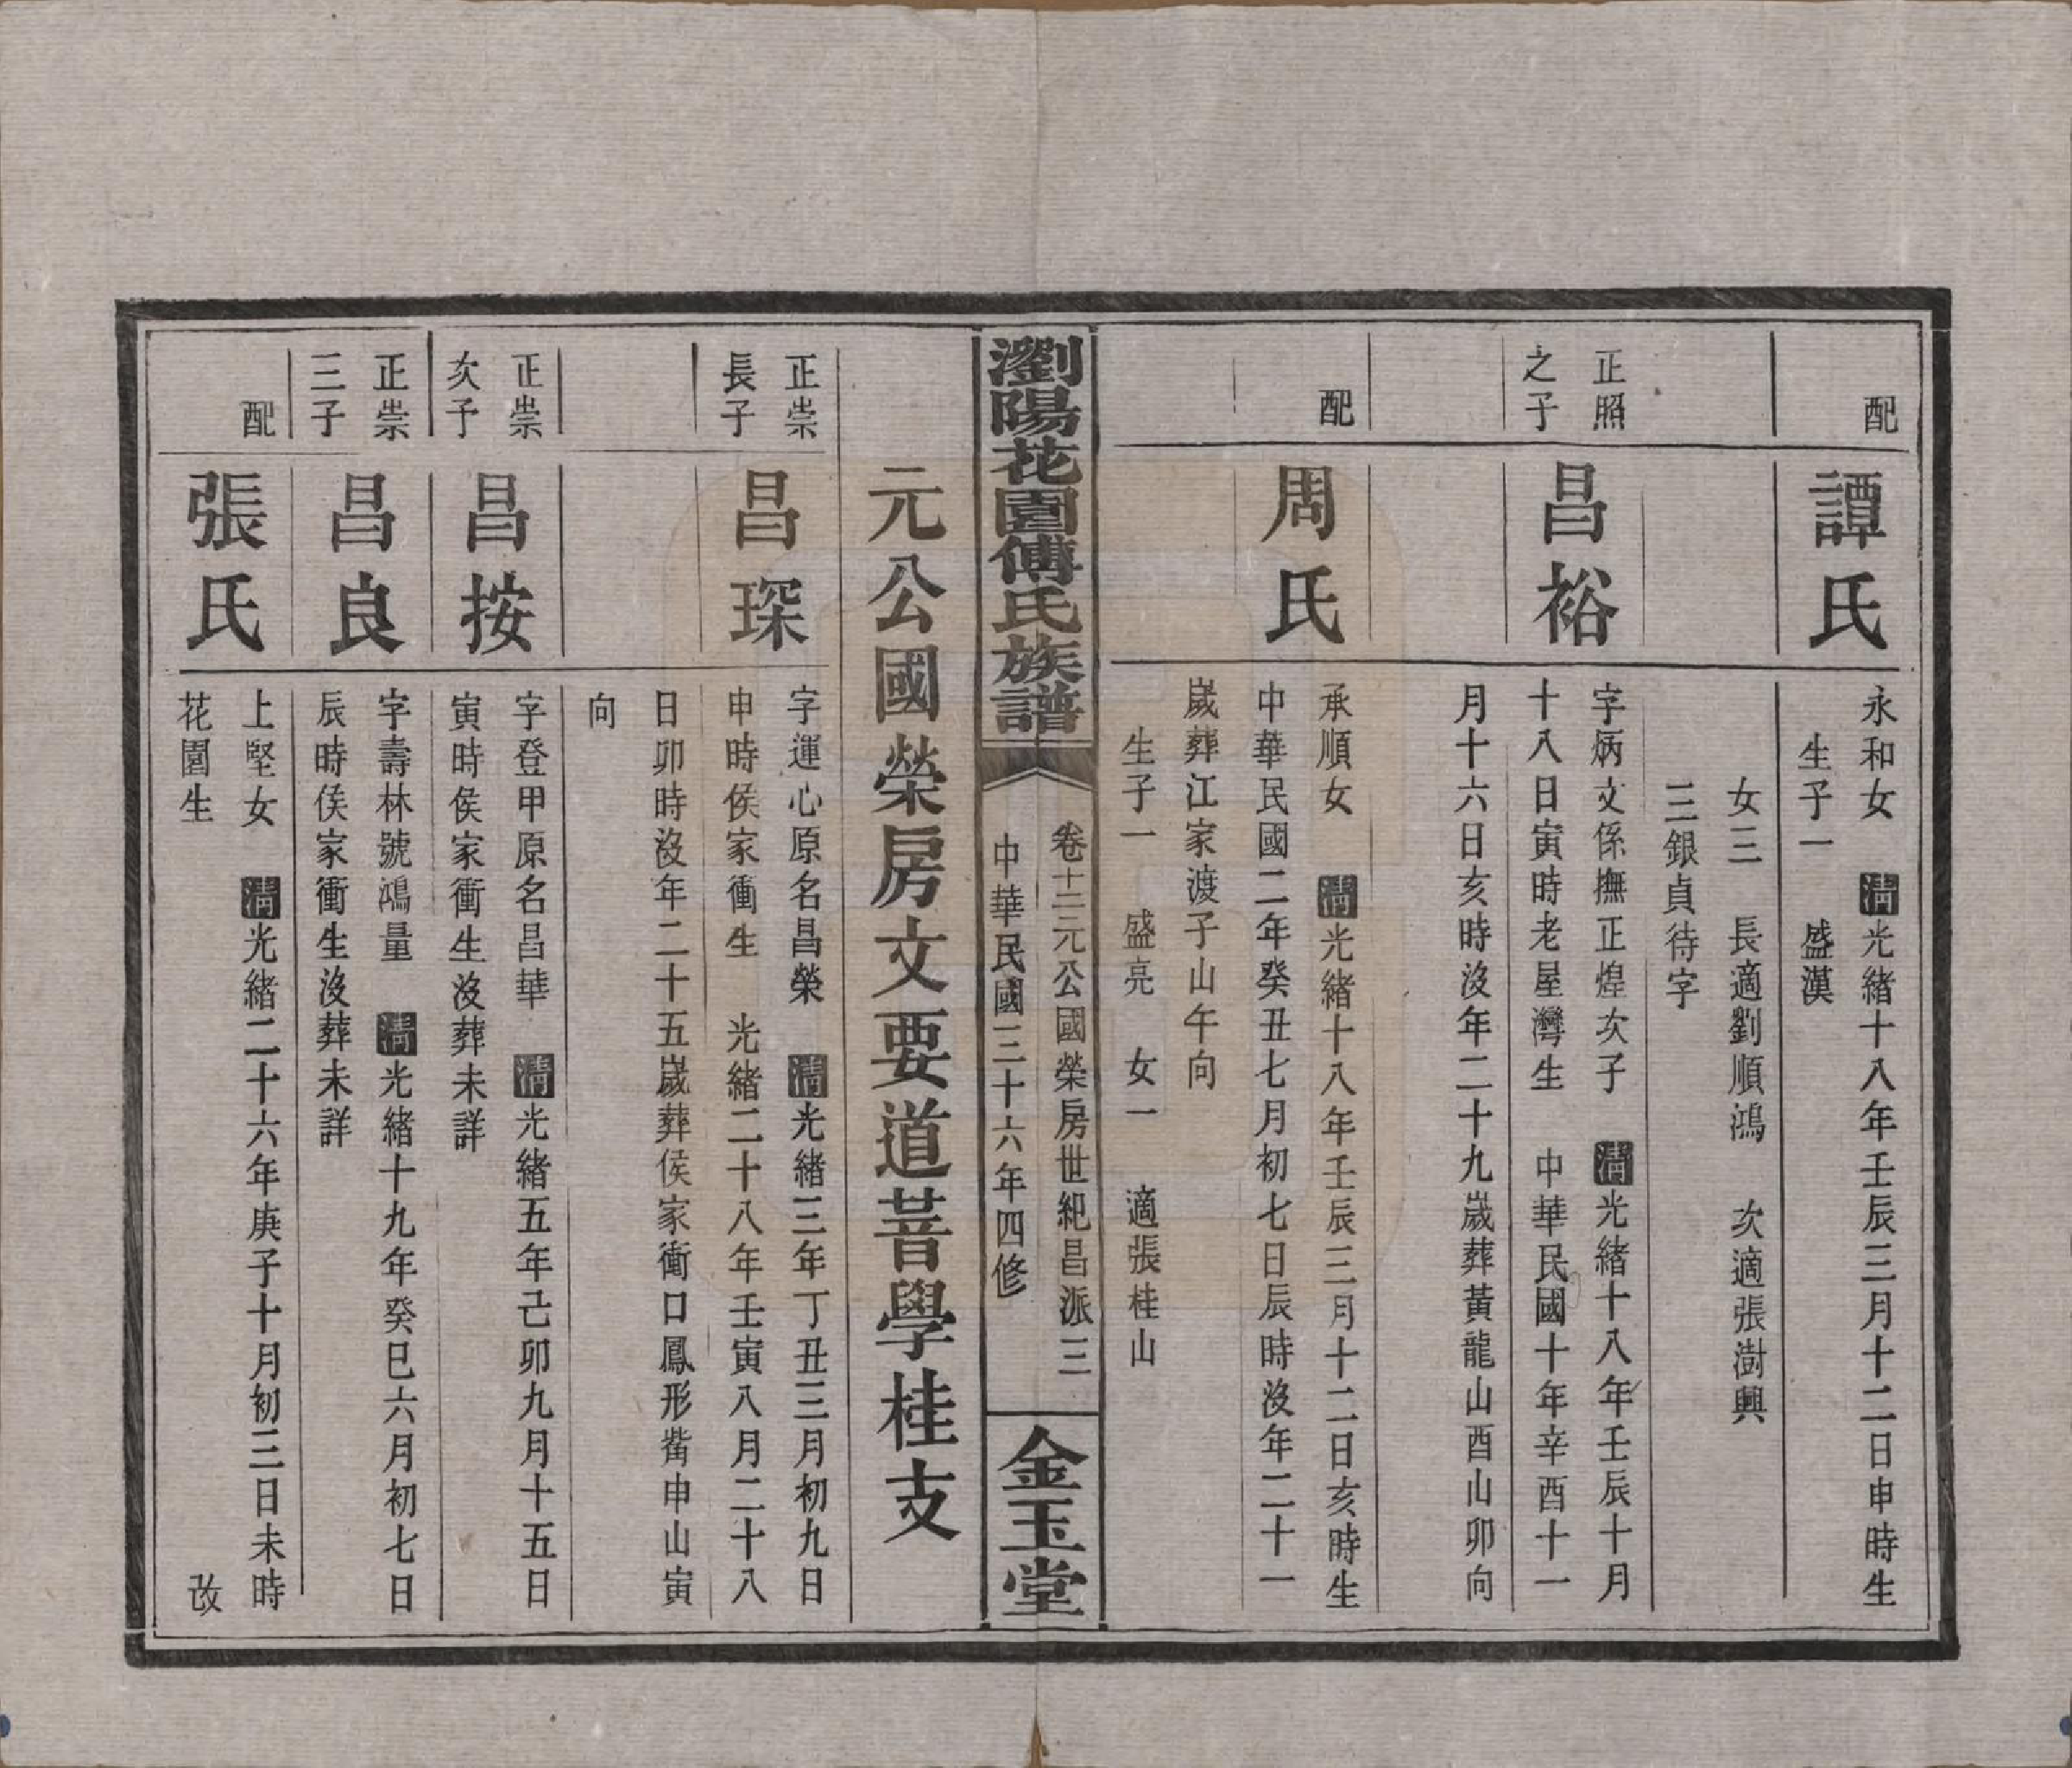 配
譚氏
永和女　清光緒十八年壬辰三月十二日申時生
生子一　盛漢
女三　長適劉順鴻　次適張澍興
三銀貞待字
正照
之子
昌裕
字炳文係撫正煌次子　清光緒十八年壬辰十月
十八日寅時老屋灣生　中華民國十年辛酉十一
月十六日亥時沒年二十九歲葬黃龍山酉山卯向
配
周氏
承順女　清光緒十八年壬辰三月十二日亥時生
中華民國二年癸丑七月初七日辰時沒年二十一
歲葬江家渡子山午向
生子一　盛亮　女一　適張桂山
瀏陽花園傅氏族譜
卷十三元公國榮房世紀昌派三
中華民國三十六年四修
金玉堂
元公國榮房文要道萻學桂支
正崇
長子
昌琛
字運心原名昌榮　清光緒三年丁丑三月初九日
申時侯家衝生　光緒二十八年壬寅八月二十八
日卯時沒年二十五歲葬侯家衝口鳳形嘴申山寅
向
正崇
次子
昌按
字登甲原名昌華　清光緒五年己卯九月十五日
寅時侯家衝生沒葬未詳
正崇
三子
昌良
字壽林號鴻量　清光緒十九年癸巳六月初七日
辰時侯家衝生沒葬未詳
配
張氏
上堅女　清光緒二十六年庚子十月初三日未時
花園生　改